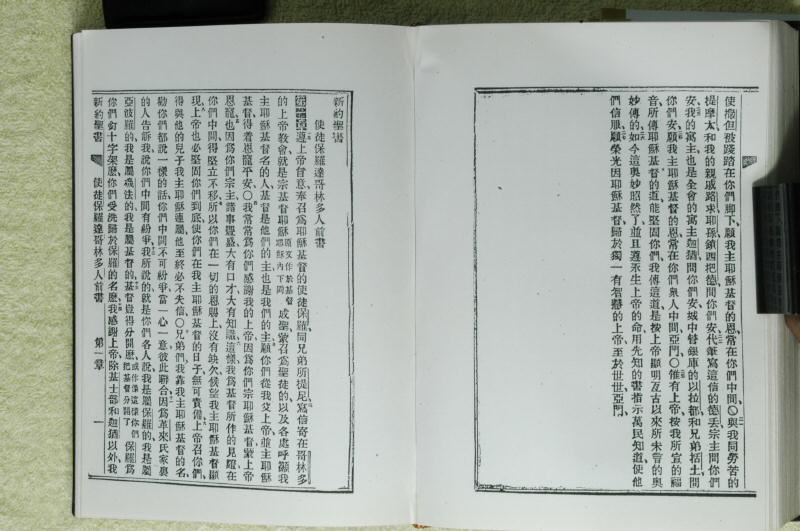 使撒但被踐踏在你們脚下、願我主耶穌基督的恩常在你們中間、〇與我同勞苦的
提摩太、和我的親戚路求耶孫鎖西把德、問你們安、代筆寫這信的德丟、宗主問你們
安、我的寓主、也是全會的寓主迦猶、問你們安、城中管銀庫的以拉都、和兄弟括土、問
你們安、願我主耶穌基督的恩、常在你們衆人中間、亞門、〇惟有上帝、按我所宣的福
音、所傳耶穌基督的道、能堅固你們、我傳這道、是按上帝顯明亙古以來所未言的奧
妙傳的、如今這奧妙照然了、並且遵永生上帝的命、用先知的書、指示萬民、知道使他
們信服、願榮光因耶穌基督、歸於獨一有智慧的上帝、至於世世、亞門、
新約聖書
使徒保羅達哥林多人前書
遵上帝旨意、奉召爲耶穌基督的使徒保羅、同兄弟所提尼、寫信寄在哥林多
的上帝教會、就是宗基督耶穌 原文作於基督耶穌內下同 成聖、蒙召爲聖徒的、以及各處呼籲我
主耶穌基督名的人、基督是他們的主、也是我們的主、願你們從我父上帝、並主耶穌
基督、得着恩寵平安、〇我常常爲你們感謝我的上帝、因爲你們宗耶穌基督、蒙上帝
恩寵、也因爲你們宗主、諸事豐盛、大有口才、大有知識、這樣、我爲基督所作的見證、在
你們中間得堅立不移、所以你們在一切的恩賜上、沒有缺欠、候望我主耶穌基督顯
現、上帝也必堅固你們到底、使你們在我主耶穌基督的日子、無可責備、上帝召你們、
得與他的兒子我主耶穌連屬、他至終必不失信、〇兄弟們、我靠我主耶穌基督的名、
勸你們都說一樣的話、你們中間不可紛爭、當一心一意、彼此聯合、因爲革來氏家裏
的人告訴我、說你們中間有紛爭、我所說的、就是你們各人說、我是屬保羅的、我是屬
亞波羅的、我是屬磯法的、我是屬基督的、基督豈得分開麽、或作像這樣你們把基督分開了 保羅爲
你們釘十字架麽、你們受洗歸於保羅的名麽、我感謝上帝、除基士部和迦猶以外、我
新約聖書 使徒保羅達哥林多人前書 第一章 一